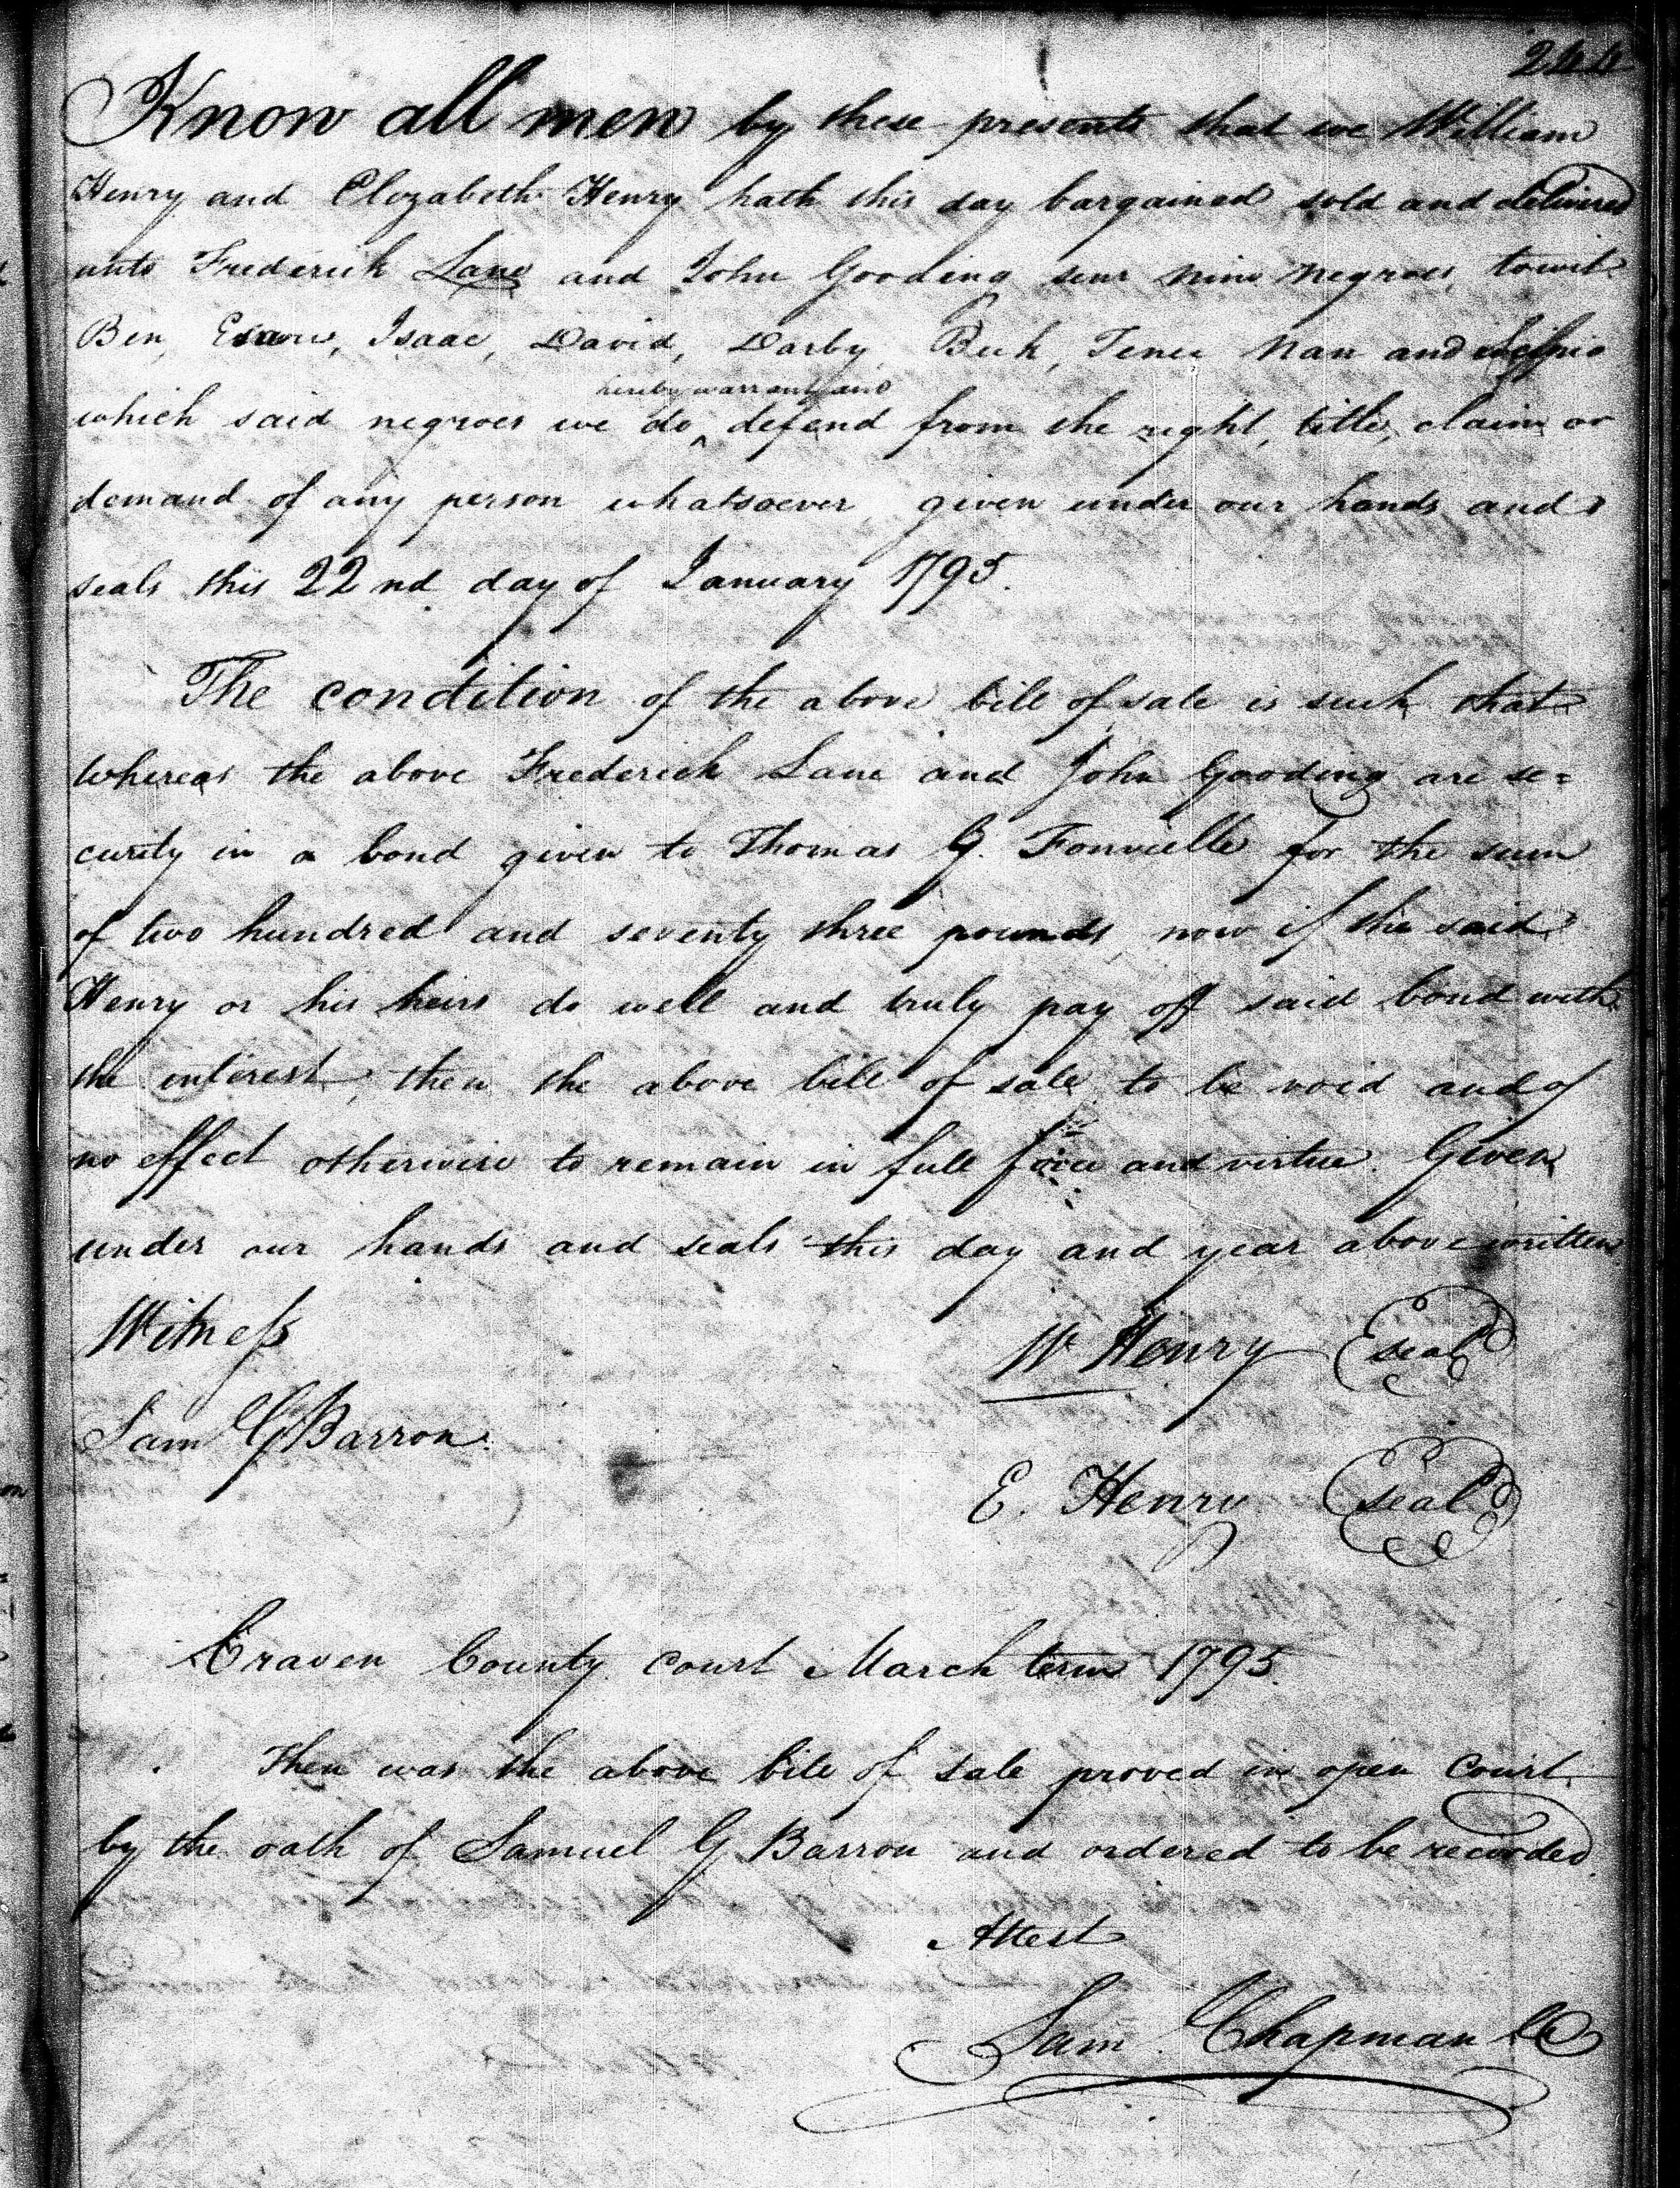 244
Know all men by these presents that we William
Henry and Elizabeth Henry hath this day bargained sold and delivered
unto Frederick Lane and John Gooding senr nine negroes, towit
Ben, Isaac, David, Darby, Beck, Tener Nan and Scipio
hereby warrant and
which said negroes we do ^ defend from the right, title, claim or
demand of any person whatsoever given under our hands and
seals this 22nd day of January 1795.
The condition of the above bill of sale is such that
whereas the above Frederick Lane and John Gooding are se=
curity in a bond given to Thomas G. Fonvielle for the sum
of two hundred and seventy three pounds, now if the said
Henry or his heirs do well and truly pay off said bond with
the interest, then the above bill of sale to be void and of
no effect otherwise to remain in full force and virtue. Given
under our hands and seals this day and year above written
Witness
W Henry seal
Sam G Barron.
E. Henry seal
Craven County court March term 1795.
Then was the above bill of sale proved in open Court
by the oath of Samuel G Barron and ordered to be recorded.
Attest
Sam. Chapman CC